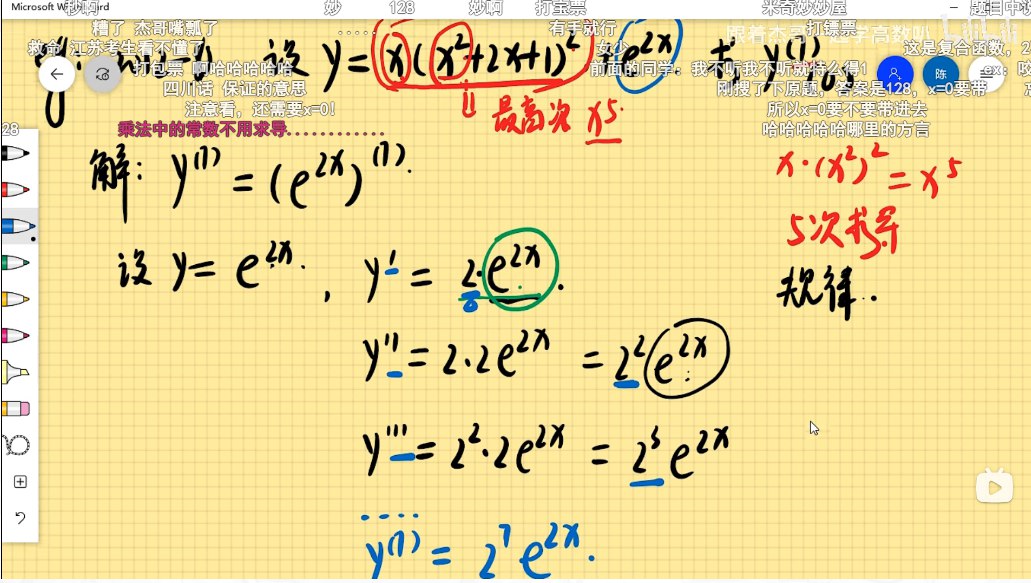 妙 128 妙啊 打宝票 米奇妙妙屋
糟了 杰哥嘴瓢了 ..... 有手就行 打镖票
救命 江苏考生看不懂了 这是复合函数，
设 y = x(x²+2x+1)² + e^{2x} 求 y^{(7)}
打包票 啊哈哈哈哈哈 前面的同学：我不听我不听就特么得1 陈
四川话 保证的意思 刚搜了下原题，答案是128，x=0要带
注意看，还需要x=0！ 所以x=0要不要带进去
最高次 x⁵
28 乘法中的常数不用求导............ 哈哈哈哈哈哪里的方言
解: y^{(7)} = (e^{2x})^{(7)}.
x·(x²)² = x⁵
5次求导
设 y = e^{2x}. , y' = 2·e^{2x}.
规律..
y'' = 2·2e^{2x} = 2² e^{2x}
y''' = 2²·2e^{2x} = 2³ e^{2x}
....
y^{(7)} = 2⁷ e^{2x}.